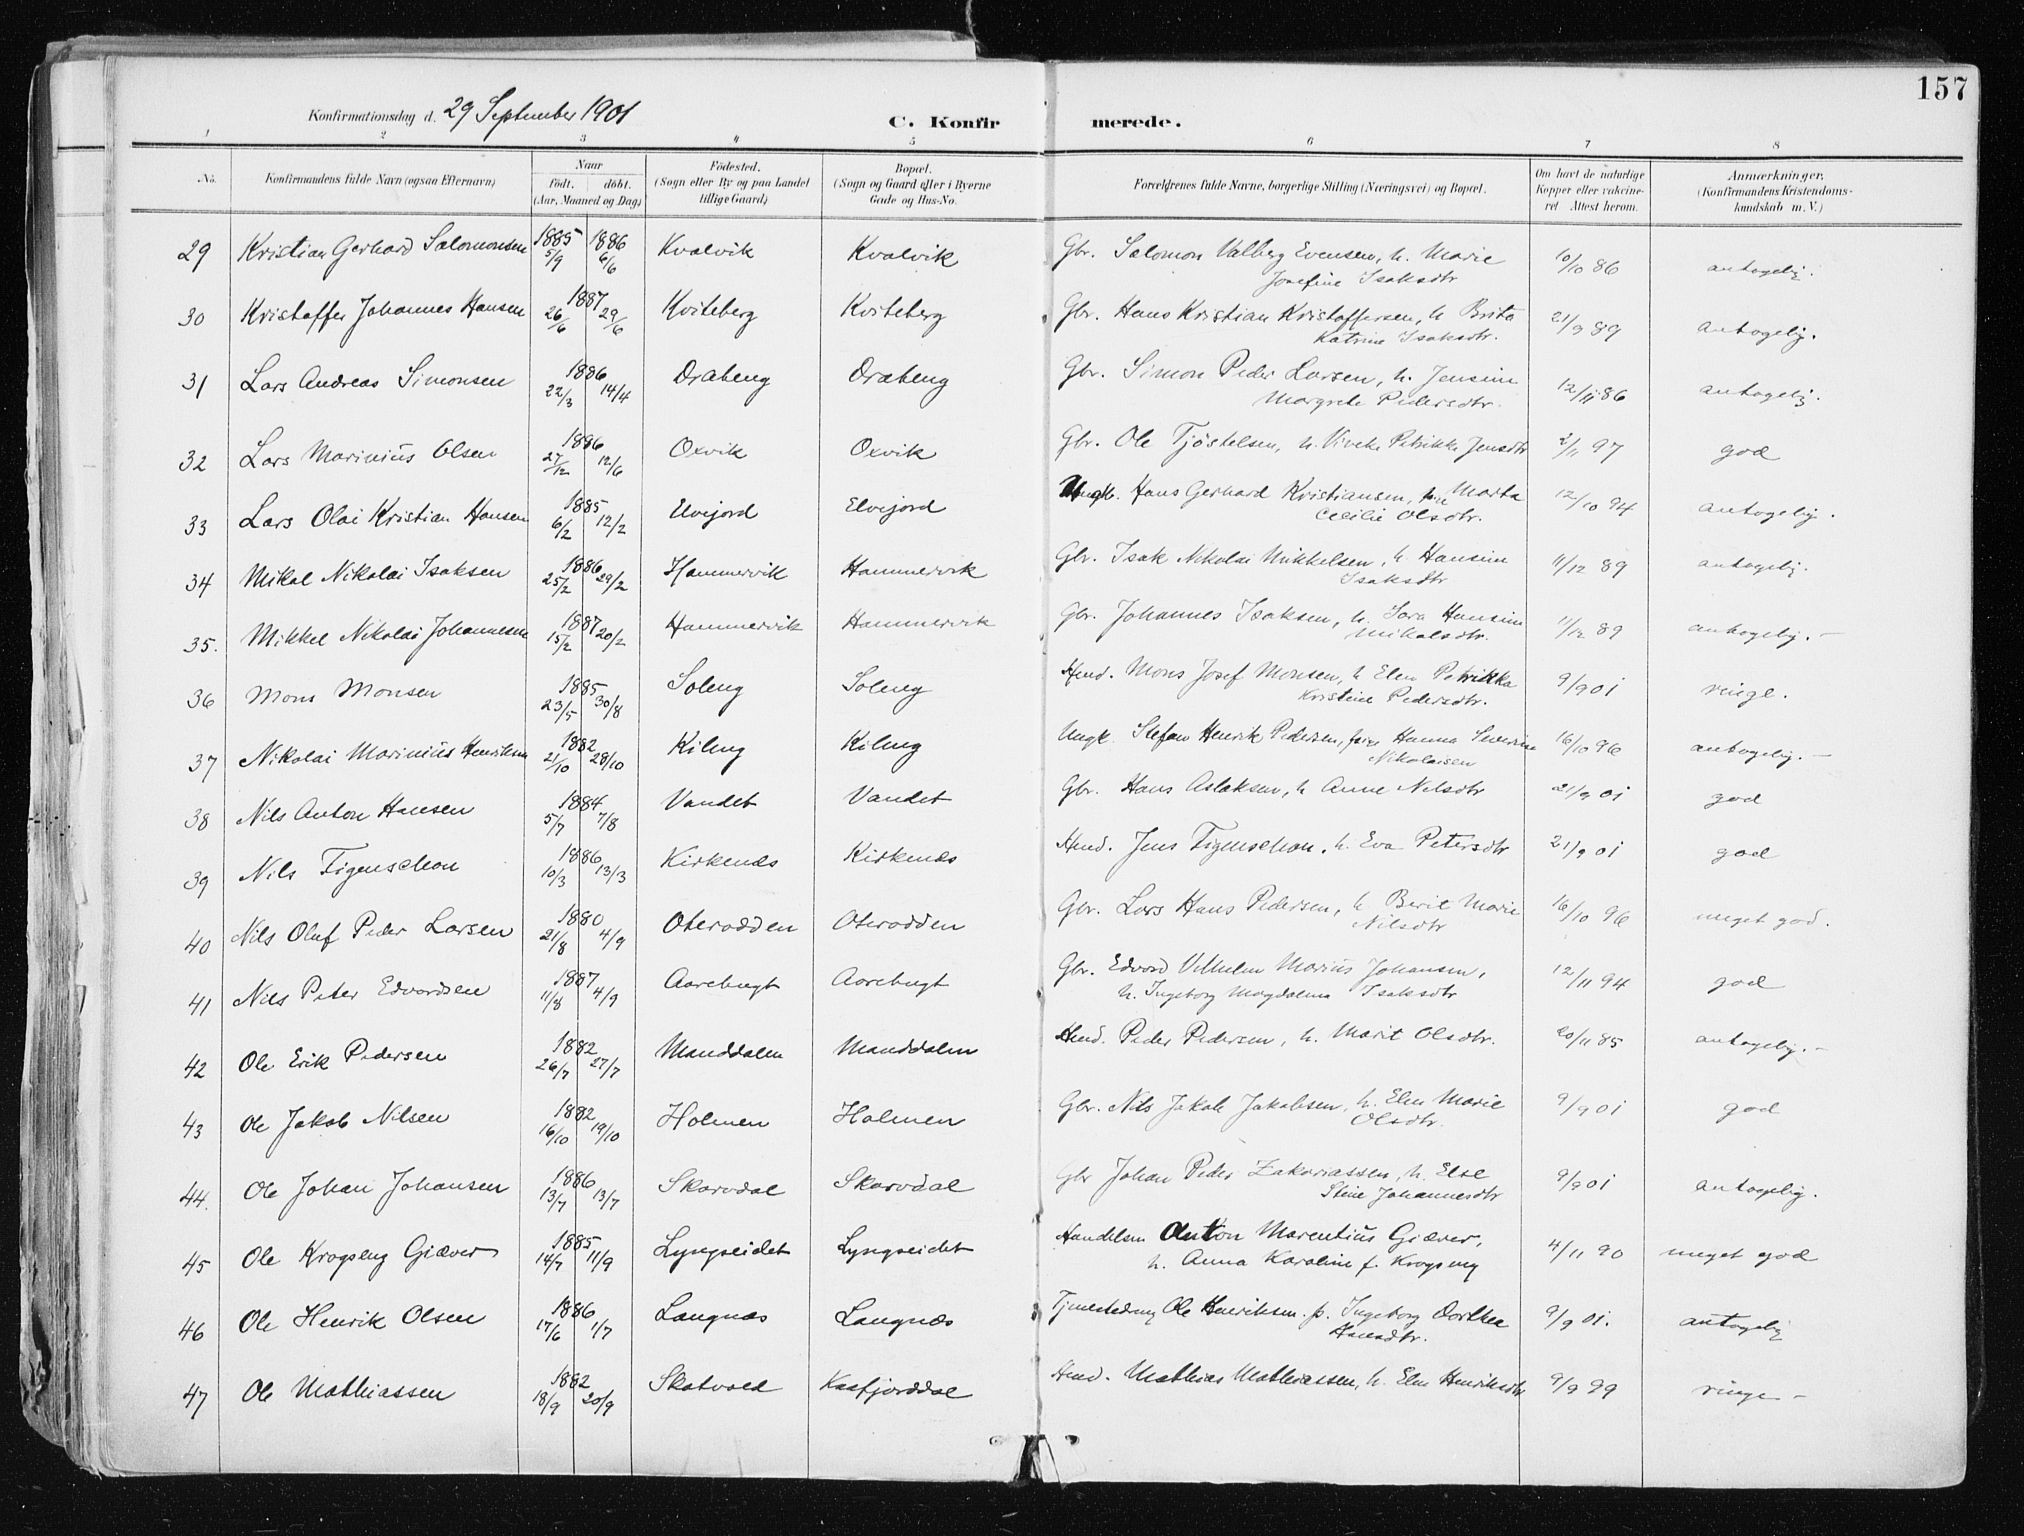 157
Konfirmationsdag d. 29 September 1901
C. Konfirmerede.
1 2 3 4 5 6 7 8
No. Konfirmandens fulde Navn (ogsaa Efternavn) Naar født. døbt. (Aar, Maaned og Dag) Fødested. (Sogn eller By og paa Landet tillige Gaard) Bopæl. (Sogn og Gaard eller i Byerne Gade og Hus-No. Forældrenes fulde Navne, borgerlige Stilling (Næringsvei) og Bopæl. Om havt de naturlige Kopper eller vakcineret Attest herom. Anmærkninger. (Konfirmandens Kristendomskundskab m. V.)
29 Kristian Gerhard Salomonsen 1885 5/9 1886 6/6 Kvalvik Kvalvik Gbr. Salomon Valberg Evensen, h. Marie 10/10 86 antagelig.
Josefine Isaksdtr
30 Kristoffer Johannes Hansen 1887 26/6 29/6 Kviteberg Kviteberg Gbr. Hans Kristian Kristoffersen, h Brita 21/9 89 antagelig.
Katrine Isaksdtr.
31 Lars Andreas Simonsen 1886 22/3 14/4 Drabeng Drabeng Gbr. Simon Peder Larsen, h. Jensine 12/11 86 antagelig.
Margrete Pedersdtr.
32 Lars Marinius Olsen 1886 27/12 12/6 Oxvik Oxvik Gbr. Ole Tjöstelsen, h. Viveke Petrikke Jensdtr 2/11 97 god
33 Lars Olai Kristian Hansen 1885 6/2 12/2 Elvejord Elvejord Ungk. Hans Gerhard Kristiansen, Marta 12/10 94 antagelig.
Cecilie Olsdtr.
34 Mikal Nikolai Isaksen 1886 25/2 29/2 Hammervik Hammervik Gbr. Isak Nikolai Mikkelsen, h. Hansine 11/12 89 antagelig.
Isaksdtr
35. Mikkel Nikolai Johannesen 1887 15/2 20/2 Hammervik Hammervik Gbr. Johannes Isaksen, h. Sara Hansine 11/12 89 antagelig. -
Mikalsdtr.
36 Mons Monsen 1885 23/5 30/8 Soleng Soleng Ind. Mons Josef Monsen, h Elen Petrikka 9/9 01 ringe.
Kristine Pedersdtr.
37 Nikolai Marinius Henriksen 1882 21/10 28/10 Kileng Kileng Ungk. Stefan Henrik Pedersen, Hanna Severine 16/10 96 antagelig. -
Nikolaisen
38 Nils Anton Hansen 1884 5/7 7/8 Vandet Vandet Gbr. Hans Aslaksen, h Anne Nilsdtr 21/9 01 god
39 Nils Figenschou 1886 10/3 13/3 Kirkenæs Kirkenæs Ind. Jens Figenschou, h. Eva Petersdtr 21/9 01 god
40 Nils Oluf Peder Larsen 1880 21/8 4/9 Oterodden Oterodden Gbr. Lars Hans Pedersen, h Berit Marie 16/10 96 meget god.
Nilsdtr
41 Nils Peter Edvardsen 1887 11/8 4/9 Aarebugt Aarebugt Gbr. Edvard Vilhelm Marius Johansen, 12/11 94 god
h. Ingeborg Magdalena Isaksdtr
42 Ole Erik Pedersen 1882 26/7 27/7 Manddalen Manddalen Ind. Peder Pedersen, h. Marit Olsdtr. 20/11 85 antagelig. -
43 Ole Jakob Nilsen 1882 16/10 19/10 Holmen Holmen Gbr. Nils Jakob Jakobsen, h. Elen Marie 9/9 01 god
Olsdtr.
44. Ole Johan Johansen 1886 13/7 13/7 Skarvdal Skarvdal Gbr Johan Peder Zakariassen, h. Else 9/9 01 antagelig.
Stine Johannesdtr
45 Ole Krogseng Giæver 1885 14/7 11/9 Lyngseidet Lyngseidet Handelsm Anton Marentius Giæver, 4/11 90 meget god
h. Anna Karoline f. Krogseng
46 Ole Henrik Olsen 1886 17/6 1/7 Langnæs Langnæs Tjenestedreng Ole Henriksen. p. Ingeborg Dorthea 9/9 01. antagelig
Hansdtr.
47 Ole Mathiassen 1882 18/9 20/9 Skatvold Kaafjorddal Ind. Mathias Mathiassen, h. Elen Henriksdtr 9/9 99 ringe -